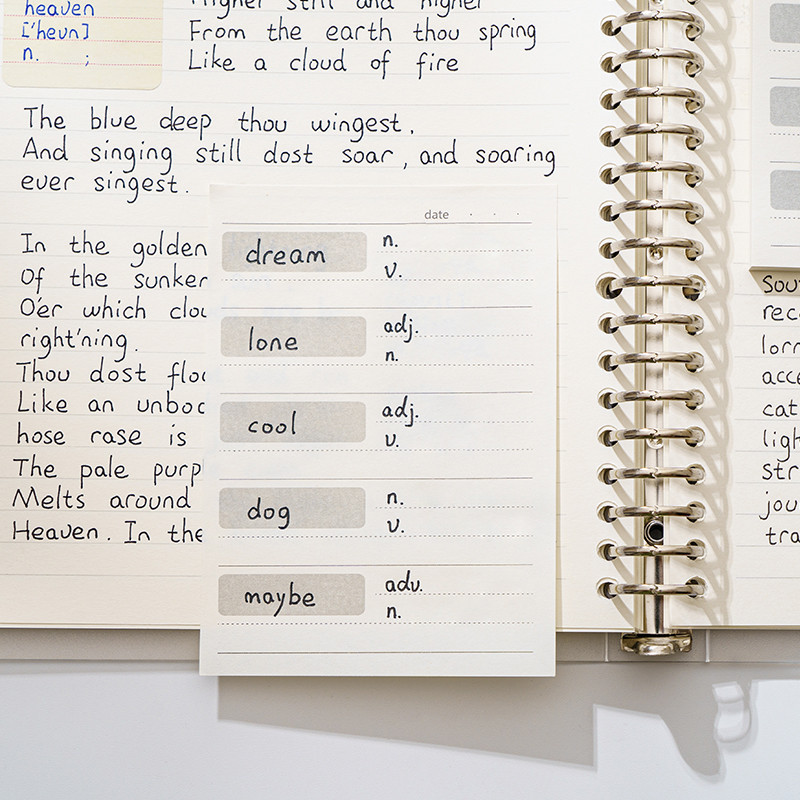 heaven
['hevn]
n. ;
Higher still and higher
From the earth thou spring
Like a cloud of fire
The blue deep thou wingest.
And singing still dost soar, and soaring
ever singest.
In the golden
Of the sunken
O'er which clou
right'ning.
Thou dost floa
Like an unbod
hose rase is
The pale purpl
Melts around
Heaven. In the
date . . .
dream n.
v.
lone adj.
n.
cool adj.
v.
dog n.
v.
maybe adv.
n.
Sou
reco
lorr
acce
cat
ligh
str
jou
tra